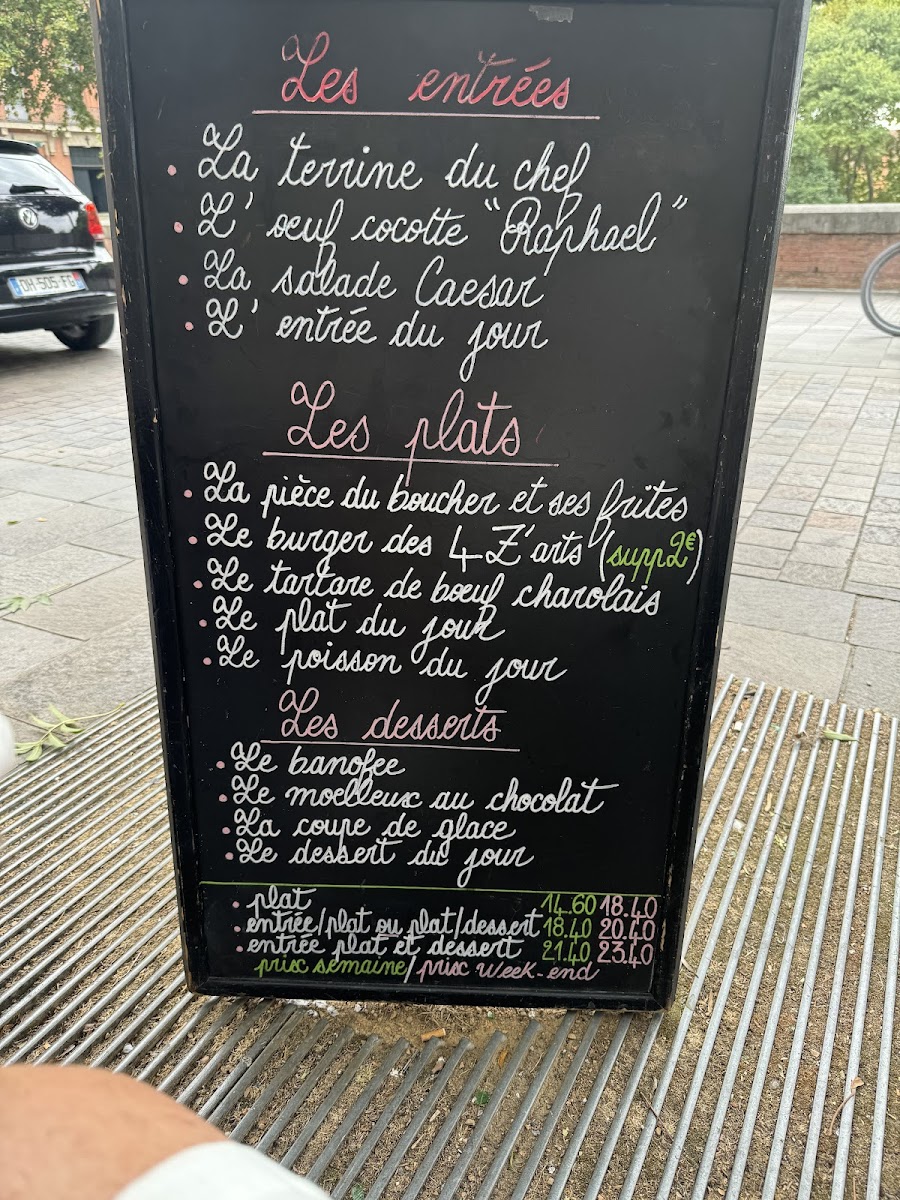 Les entrées
• La terrine du chef
• L'oeuf cocotte "Raphael"
• La salade Caesar
• L'entrée du jour
Les plats
• La pièce du boucher et ses frites
• Le burger des 4 Z'arts (supp 2€)
• Le tartare de bœuf charolais
• Le plat du jour
• Le poisson du jour
Les desserts
• Le banofee
• Le moelleux au chocolat
• La coupe de glace
• Le dessert du jour
• plat 14.60 18.40
• entrée/plat ou plat/dessert 18.40 20.40
• entrée plat et dessert 21.40 23.40
prix semaine/prix week-end
DH-505-FG